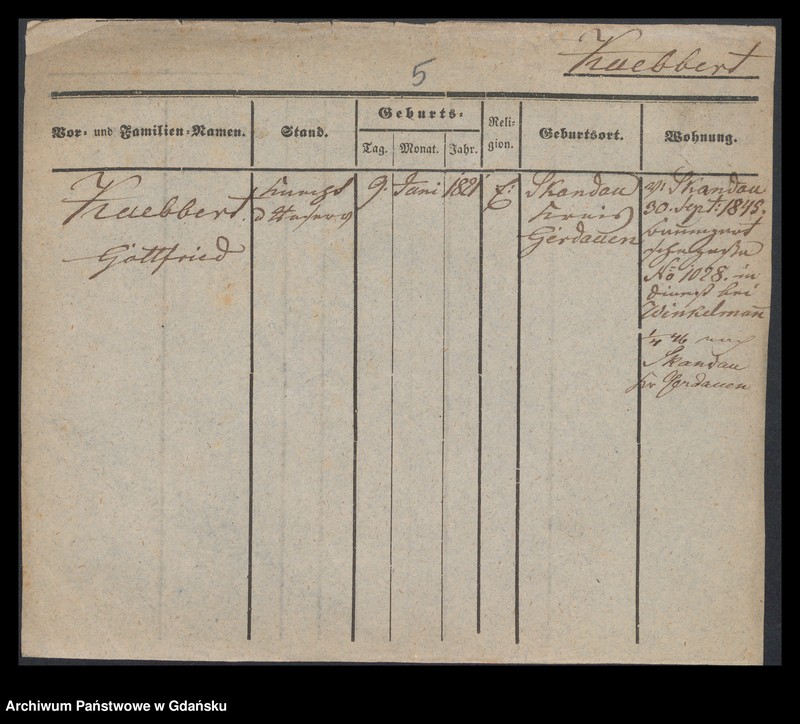 Kaebbert
5
Vor- und Familien-Namen.
Stand.
Geburts-
Tag.
Monat.
Jahr.
Reli-
gion.
Geburtsort.
Wohnung.
Kaebbert
Gottfried
Knecht
9. Juni 1821
E:
Skandau
Kreis
Gerdauen
v: Skandau
30. Sept: 1845.
No 1028. in
Dienst bei
Winkelmann
1/4 46 nach
Skandau
Kr Gerdauen
Archiwum Państwowe w Gdańsku